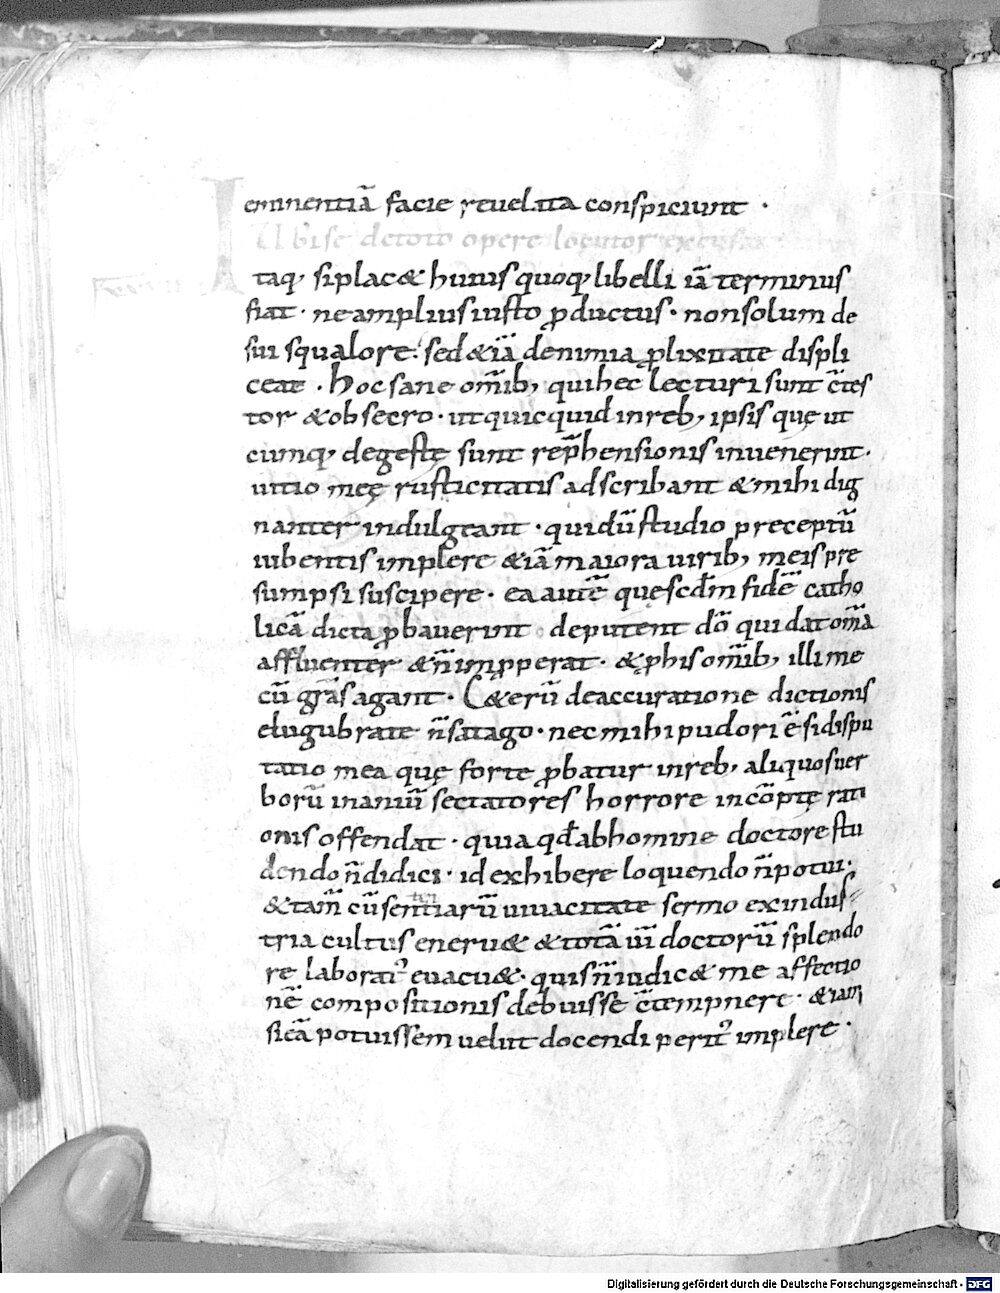 eminentiā facie reuelata conspiciunt ·
Ubi se de toto opere locutor excusat
Itaq; si plac& huius quoq; libelli iā terminus
fiat · ne amplius iusto ꝓductus · non solum de
sui squalore · sed &iā de nimia ꝓlixitate displi
ceat · hoc sane om̄ib; qui hec lecturi sunt c̄tes
tor & obsecro · ut quicquid in reb; ipsis quę ut
cumq; degestę sunt rep̄hensionis inuenerint ·
uitio meę rusticitatis adscribant & mihi dig
nanter indulgeant · qui dū studio preceptū
iubentis implere &iā maiora uirib; meis pre
sumpsi suscipere · ea autē que scd̄m fidē catho
licā dicta ꝓbauerint · deputent dō qui dat om̄ia
affluenter & n̄ imꝓperat · & ꝓ his om̄ib; illi me
cū gr̄as agant · C&erū de accuratione dictionis
elugubrate n̄ satago · nec mihi pudori ē si dispu
tatio mea quę forte ꝓbatur in reb; aliquos uer
borū inaniū sectatores horrore incōptę rati
onis offendat · quia qd̄ ab homine doctore stu
dendo n̄ didici · id exhibere loquendo n̄ potui ·
& tam̄ cū sentiarū uiuacitate sermo ex indus
ten
tria cultus eneru& & totā uim̄ doctorū splendo
re laborat᷒ euacu& · quis n̄ iudic& me affectio
nē compositionis debuisse c̄tempnere · &iam
si eā potuissem uelut docendi perit᷒ implere ·
Digitalisierung gefördert durch die Deutsche Forschungsgemeinschaft - DFG